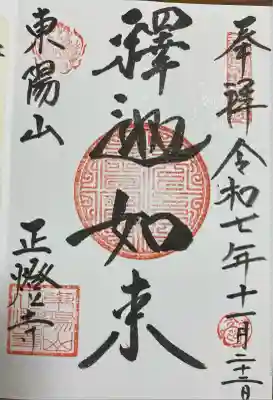 奉拝 令和七年十一月二十二日
釋迦如来
東陽山
正燈寺